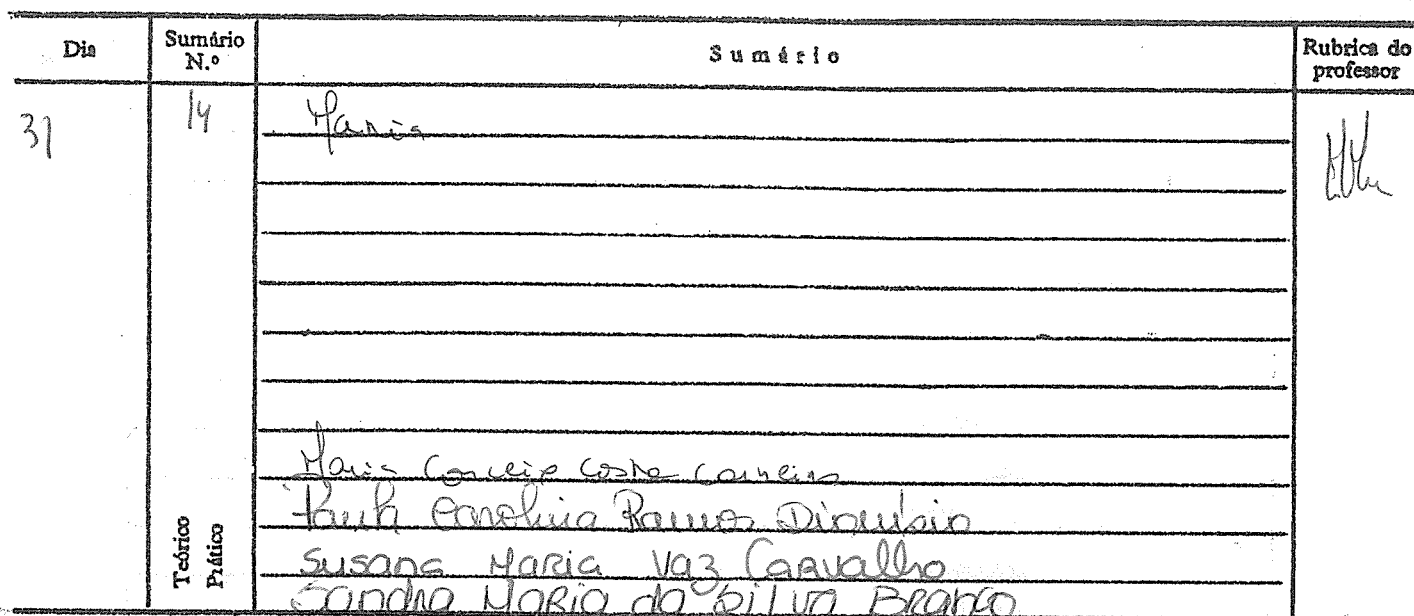 Dia Sumário N.º Sumário Rubrica do professor
31 14 Maria
Maria Conceição Costa Carneiro
Paula Carolina Ramos Dionísio
Susana Maria Vaz Carvalho
Sandra Maria da Silva Branco
Teórico
Prático